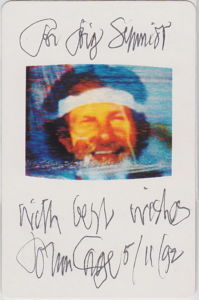 For Jörg Schmidt
with best wishes
John Cage 5/11/92